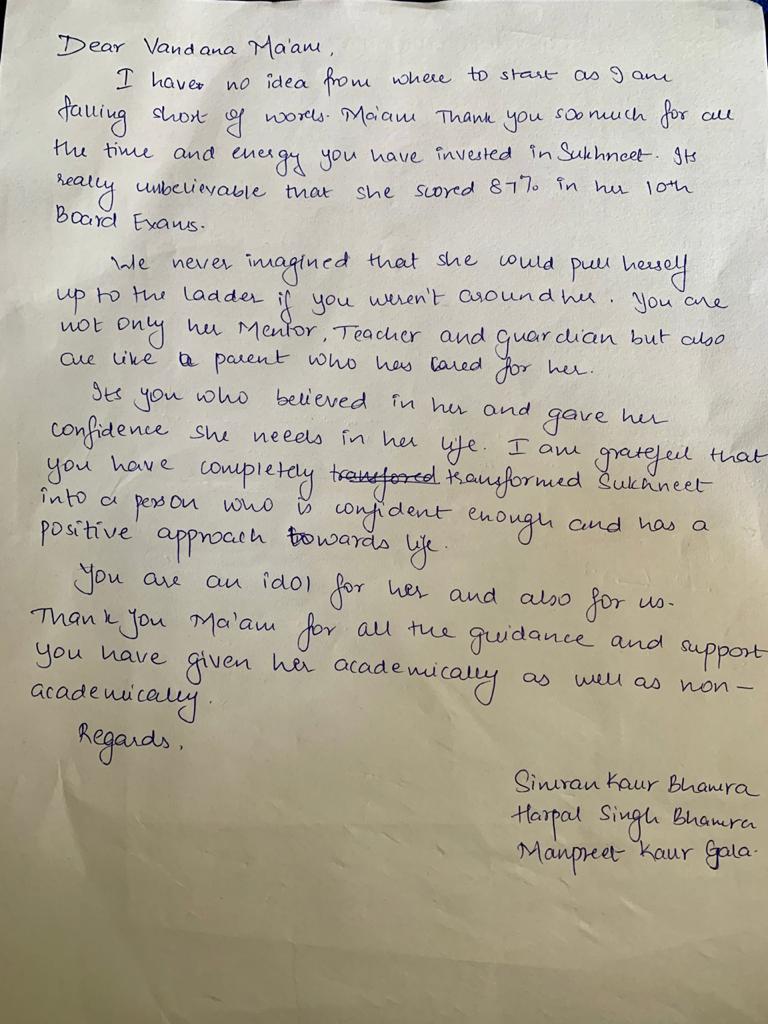 Dear Vandana Ma'am,
I have no idea from where to start as I am
falling short of words. Ma'am Thank you soo much for all
the time and energy you have invested in Sukhneet. Its
really unbelievable that she scored 87% in her 10th
Board Exams.
We never imagined that she could pull herself
up to the ladder if you weren't around her. You are
not only her Mentor, Teacher and guardian but also
are like a parent who has cared for her.
Its you who believed in her and gave her
confidence she needs in her life. I am grateful that
you have completely transfored transformed Sukhneet
into a person who is confident enough and has a
positive approach towards life.
You are an idol for her and also for us.
Thank you Ma'am for all the guidance and support
you have given her academically as well as non-
academically.
Regards,
Simran Kaur Bhamra
Harpal Singh Bhamra
Manpreet Kaur Gala.